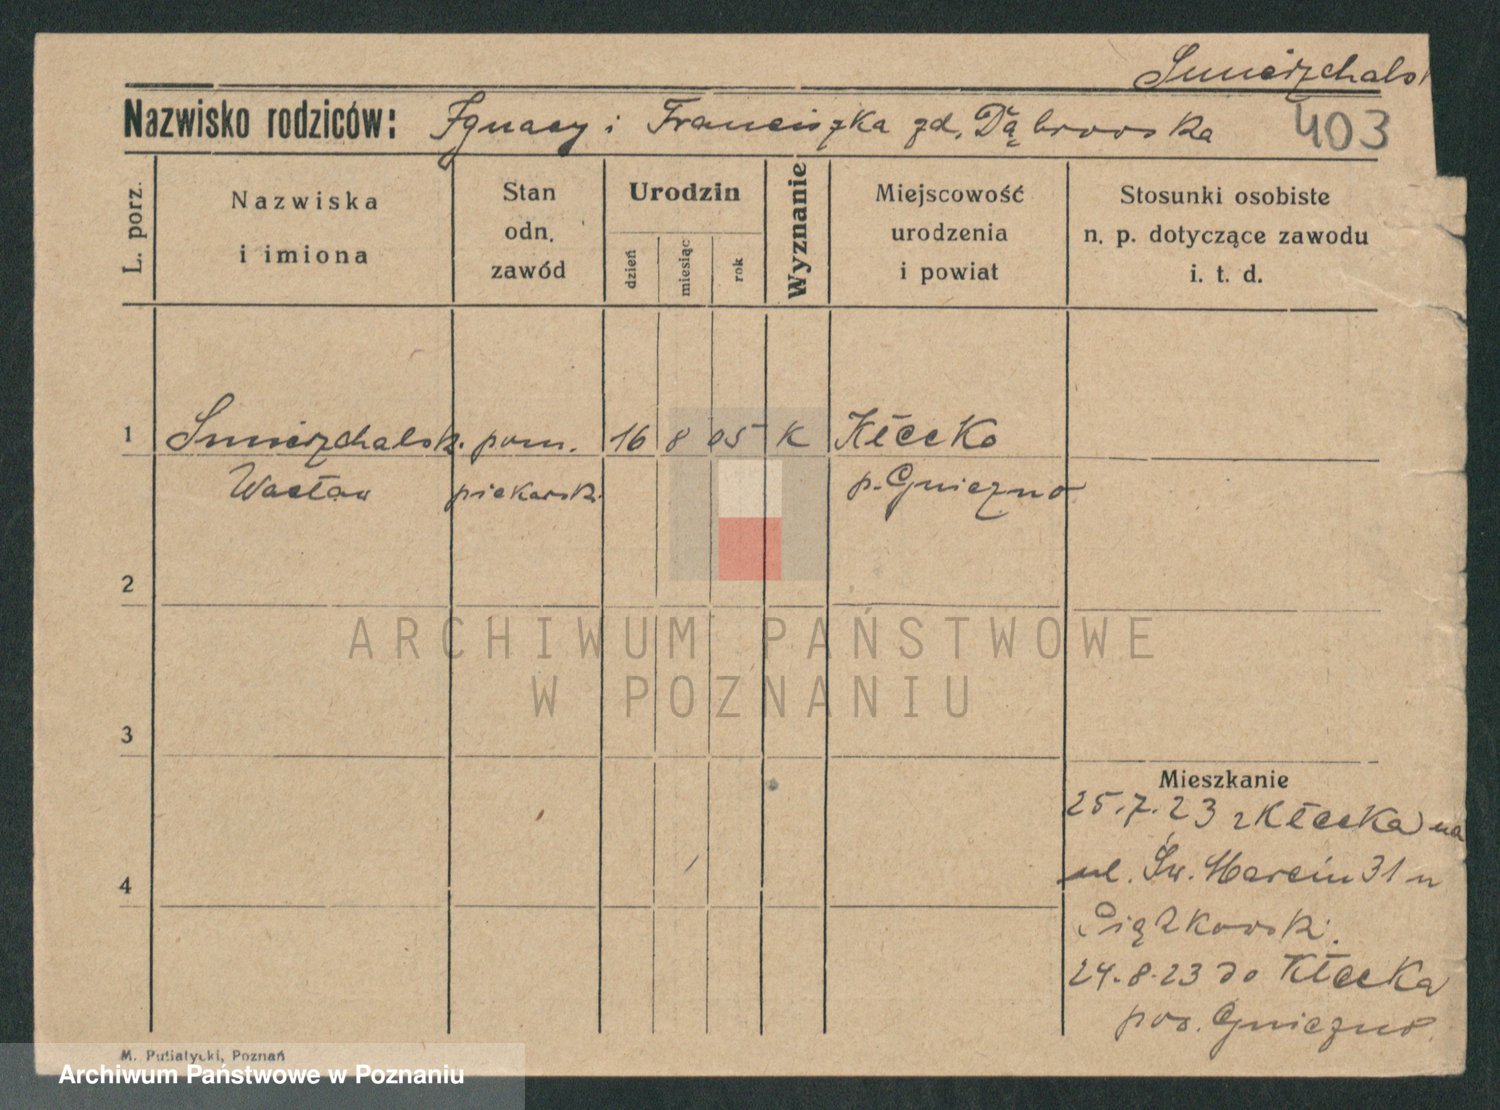 Smierzchalsk
Nazwisko rodziców: Ignacy i Franciszka zd. Dąbrowska 403
L. porz.
Nazwiska
i imiona
Stan
odn.
zawód
Urodzin
dzień
miesiąc
rok
Wyznanie
Miejscowość
urodzenia
i powiat
Stosunki osobiste
n. p. dotyczące zawodu
i. t. d.
1 Smierzchalsk. pom. 16 8 05 K Kłecko
Wacław piekarsk. p. Gniezno
2
ARCHIWUM PAŃSTWOWE
W POZNANIU
3
Mieszkanie
25.7.23 z Kłecka na
ul. Św. Marcin 31 u
24.8.23 do Kłecka
pow. Gniezno
4
M. Putiatycki, Poznań
Archiwum Państwowe w Poznaniu